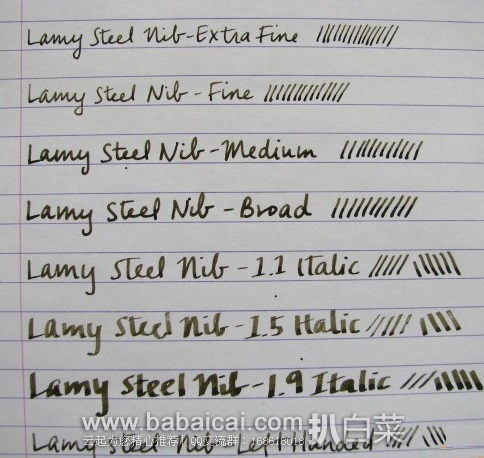 Lamy Steel Nib-Extra Fine
Lamy Steel Nib - Fine
Lamy Steel Nib - Medium
Lamy Steel Nib - Broad
Lamy Steel Nib - 1.1 Italic
Lamy Steel Nib - 1.5 Italic
Lamy Steel Nib - 1.9 Italic
www.babaicai.com 扒白菜
Lamy Steel Nib - Left Handed
云起为您精心推荐 QQ交流群: